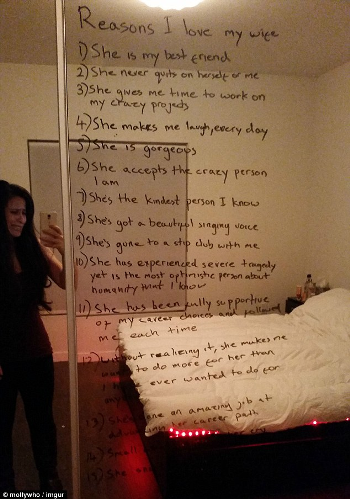 Reasons I love my wife
1) She is my best friend
2) She never quits on herself or me
3) She gives me time to work on
my crazy projects
4) She makes me laugh, every day
5) She is gorgeous
6) She accepts the crazy person
I am
7) She's the kindest person I know
8) She's got a beautiful singing voice
9) She's gone to a strip club with me
10) She has experienced severe tragedy
yet is the most optimistic person about
humanity that I know
11) She has been fully supportive
of my career choices and followed
me each time
12) Without realizing it, she makes me
to do more for her than
ever wanted to do for
13) She's done an amazing job at
her career path
14)
15)
© mollywho / imgur